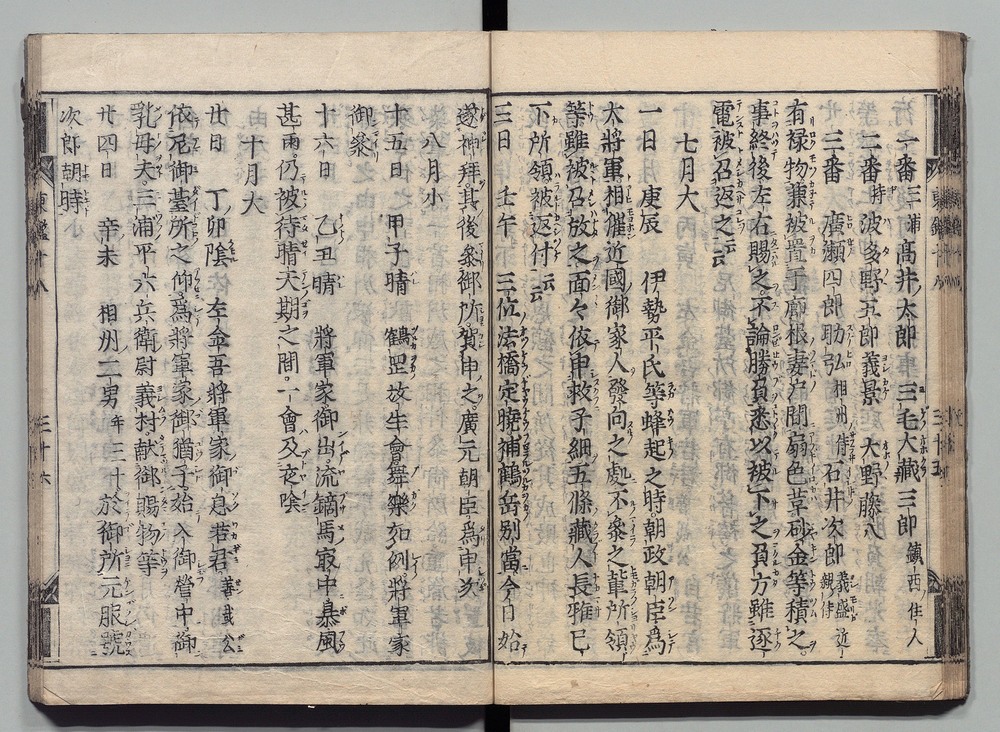 一番 三浦 高井太郎 三毛大藏三郎 鎮西住人
二番 波多野五郎義景 大野藤八
三番 廣瀬四郎助弘 相州侍 石井次郎 義盛近親侍
有禄物兼被置于廊根妻戸間扇色草砂金等積之
事終後左右賜之不論勝負悉以被下之負方雖逐
電被召返之云云
七月大
一日 庚辰 伊勢平氏等蜂起之時朝政朝臣爲
大將軍相催近國御家人發向之處不參之輩所領
等雖被召放之面々依申救子細五條藏人長雅已
下所領被返付云云
三日 壬午 三位法橋定曉補鶴岳別當今日始
遂神拜其後參御所賀申之廣元朝臣爲申次
八月小
十五日 甲子晴 鶴岳放生會舞樂如例將軍家
御參
十六日 乙丑晴 將軍家御出流鏑馬最中暴風
甚雨仍被待晴天期之間一會及夜陰
十月大
廿日 丁卯陰 左金吾將軍家御息若君 善哉公
依尼御臺所之仰爲將軍家御猶子始入御營中御
乳母夫三浦平六兵衛尉義村献御賜物等
廿四日 辛未 相州二男 年三十 於御所元服號
次郎朝時
東鑑十八 三十六